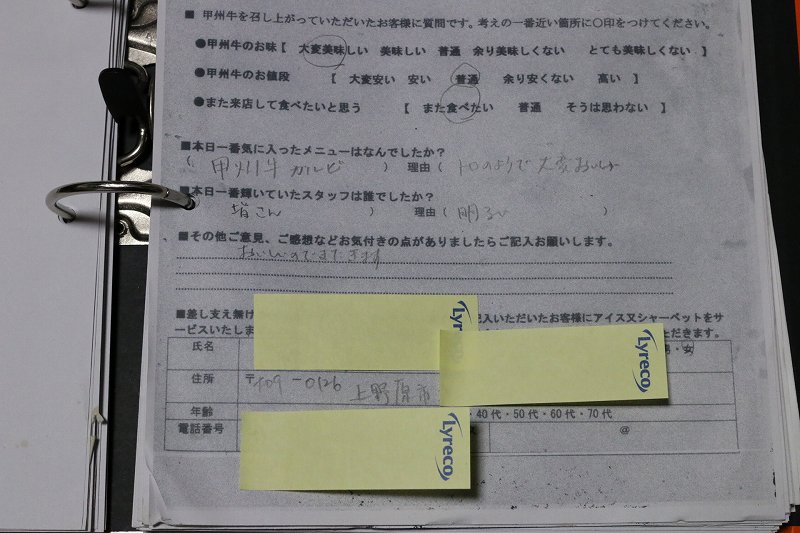 ■ 甲州牛を召し上がっていただいたお客様に質問です。考えの一番近い箇所に〇印をつけてください。
●甲州牛のお味【 大変美味しい 美味しい 普通 余り美味しくない とても美味しくない 】
●甲州牛のお値段 【 大変安い 安い 普通 余り安くない 高い 】
●また来店して食べたいと思う 【 また食べたい 普通 そうは思わない 】
■本日一番気に入ったメニューはなんでしたか？
( 甲州牛 カルビ ) 理由 ( トロのようで大変おいしい
■本日一番輝いていたスタッフは誰でしたか？
さん ) 理由 ( 明るい )
■その他ご意見、ご感想などお気付きの点がありましたらご記入お願いします。
おいしいのでまたきます
■差し支え無け 記入いただいたお客様にアイス又シャーベットをサ
ービスいたしま ただきます。
氏名 ・女
住所 〒409-0126 上野原市
年齢 ・40代・50代・60代・70代
電話番号 @
Lyreco
Lyreco
Lyreco